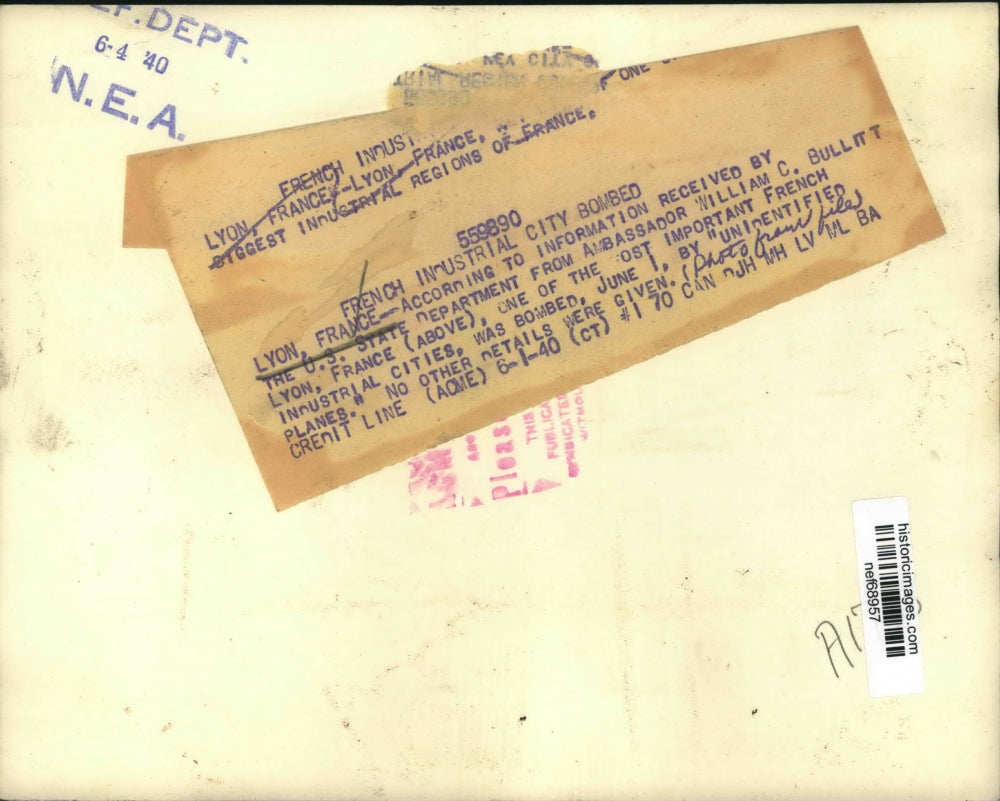 EF. DEPT.
6-4 '40
N.E.A.
KEY CITY
TRIAL REGION
FRENCH INDUST
LYON, FRANCE--LYON FRANCE, OF ONE
BIGGEST INDUSTRIAL REGIONS OF FRANCE.
559890
FRENCH INDUSTRIAL CITY BOMBED
LYON, FRANCE--ACCORDING TO INFORMATION RECEIVED BY
THE U.S. STATE DEPARTMENT FROM AMBASSADOR WILLIAM C. BULLITT
LYON, FRANCE (ABOVE), ONE OF THE OST IMPORTANT FRENCH
INDUSTRIAL CITIES, WAS BOMBED, JUNE 1, BY "UNIDENTIFIED
PLANES." NO OTHER DETAILS WERE GIVEN. (Photo from files)
CREDIT LINE (ACME) 6-1-40 (CT) #1 70 CAN DJH MH LV ML BA
Pleas
THIS
PUBLICA
SYNDICATED
WITHOU
historicimages.com
nef68957
A17